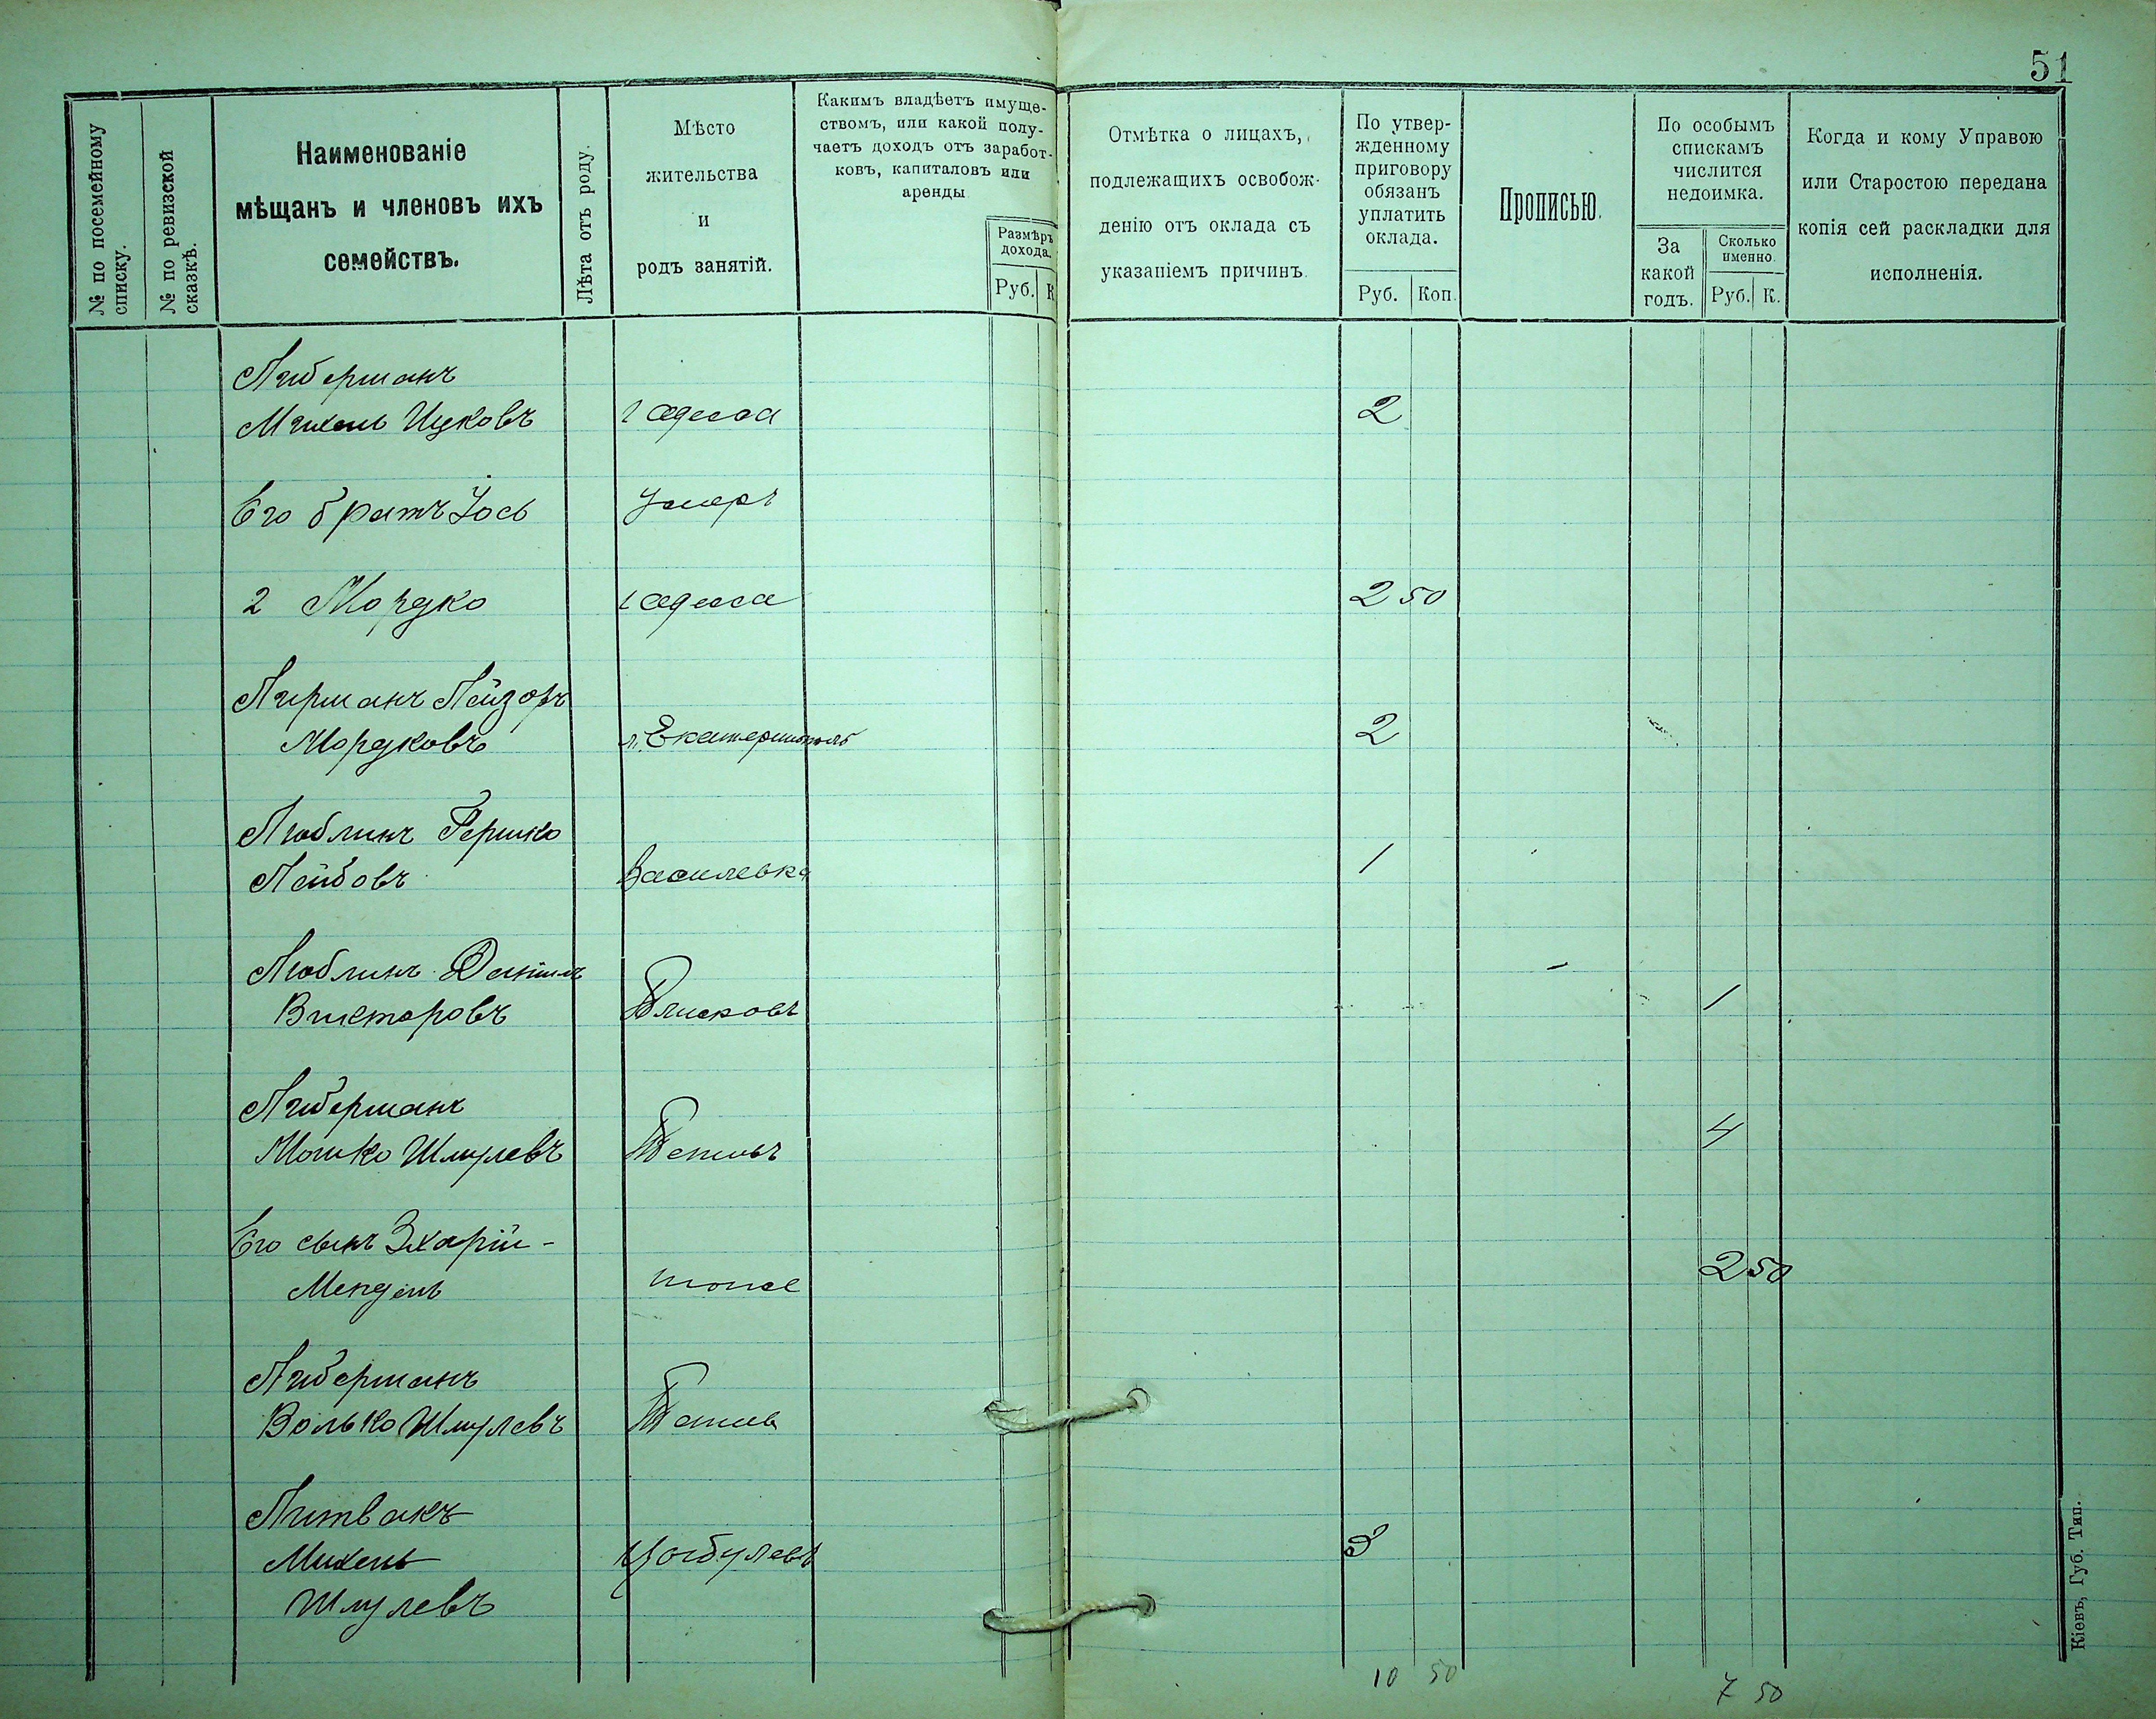 51
№ по посемейному
списку.
№ по ревизской
сказкѣ.
Наименованіе
мѣщанъ и членовъ ихъ
семействъ.
Лѣта отъ роду.
Мѣсто
жительства
и
родъ занятій.
Какимъ владѣетъ имуще-
ствомъ, или какой полу-
чаетъ доходъ отъ заработ-
ковъ, капиталовъ или
аренды
Размѣръ
дохода.
Руб. К
Отмѣтка о лицахъ,
подлежащихъ освобож-
денію отъ оклада съ
указаніемъ причинъ.
По утвер-
жденному
приговору
обязанъ
уплатить
оклада.
Руб. Коп.
Прописью.
По особымъ
спискамъ
числится
недоимка.
За
какой
годъ.
Сколько
именно.
Руб. К.
Когда и кому Управою
или Старостою передана
копія сей раскладки для
исполненія.
Либерманъ
Михель Ицковъ г Одесса 2
Его братъ Іось Умеръ
2 Мордко г Одесса 2 50
Лирманъ Лейзоръ
Мордковъ м. Екатеринополь 2
Люблинъ Гершко
Лейбовъ Василевка 1
Люблинъ Даніилъ
Викторовъ Плисковъ 1
Либерманъ
Мошко Шмулевъ 4
Его сынъ Захарій-
Мендель тоже 2 50
Либерманъ
Волько Шмулевъ
Литвакъ
Михель Цыбулевъ 3
Шмулевъ
10 50
7 50
Кіевъ, Губ. Тип.